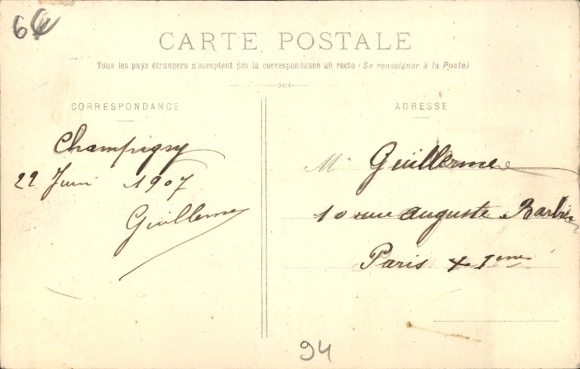 66
CARTE POSTALE
Tous les pays étrangers n'acceptent pas la correspondance au recto (Se renseigner à la Poste)
CORRESPONDANCE
Champigny
22 Juin 1907
Guillerme
ADRESSE
M Guillerme
10 rue Auguste Barbier
Paris XIeme
94